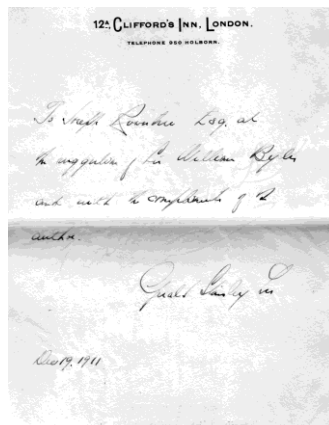 12A, CLIFFORD'S INN, LONDON.
TELEPHONE 950 HOLBORN.
To Joseph Rowntree Esq. at
the suggestion of Sir William Byles
and with the compliments of the
author.
Dec 19, 1911